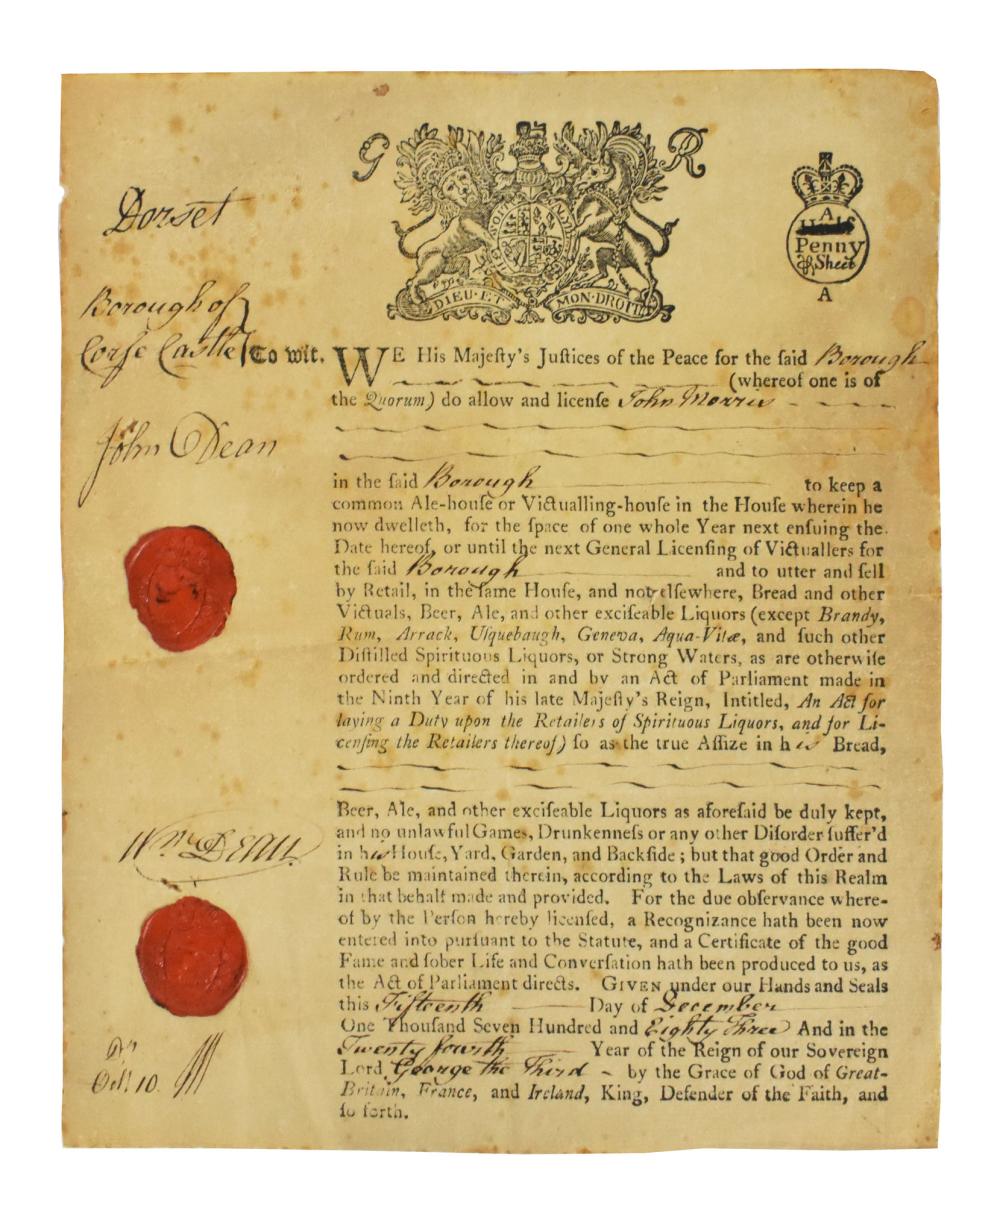 G R
HONI SOIT QUI MAL Y PENSE
DIEU·ET MON·DROIT
A
Half
Penny
Sheet
A
Dorset
Borough of
Corfe Castle } To wit.
John Dean
Wm. Dean
Oct. 10
WE His Majeſty's Juſtices of the Peace for the ſaid Borough
(whereof one is of
the Quorum) do allow and licenſe John Morris
in the ſaid Borough to keep a
common Ale-houſe or Victualling-houſe in the Houſe wherein he
now dwelleth, for the ſpace of one whole Year next enſuing the
Date hereof, or until the next General Licenſing of Victuallers for
the ſaid Borough and to utter and ſell
by Retail, in the ſame Houſe, and not elſewhere, Bread and other
Victuals, Beer, Ale, and other exciſeable Liquors (except Brandy,
Rum, Arrack, Uſquebaugh, Geneva, Aqua-Vitæ, and ſuch other
Diſtilled Spirituous Liquors, or Strong Waters, as are otherwiſe
ordered and directed in and by an Act of Parliament made in
the Ninth Year of his late Majeſty's Reign, Intitled, An Act for
laying a Duty upon the Retailers of Spirituous Liquors, and for Li-
cenſing the Retailers thereof) ſo as the true Aſſize in his Bread,
Beer, Ale, and other exciſeable Liquors as aforeſaid be duly kept,
and no unlawful Games, Drunkenneſs or any other Diſorder ſuffer'd
in his Houſe, Yard, Garden, and Backſide; but that good Order and
Rule be maintained therein, according to the Laws of this Realm
in that behalf made and provided. For the due obſervance where-
of by the Perſon hereby licenſed, a Recognizance hath been now
entered into purſuant to the Statute, and a Certificate of the good
Fame and ſober Life and Converſation hath been produced to us, as
the Act of Parliament directs. GIVEN under our Hands and Seals
this Fifteenth Day of December
One Thouſand Seven Hundred and Eighty Three And in the
Twenty fourth Year of the Reign of our Sovereign
Lord George the Third by the Grace of God of Great-
Britain, France, and Ireland, King, Defender of the Faith, and
ſo forth.